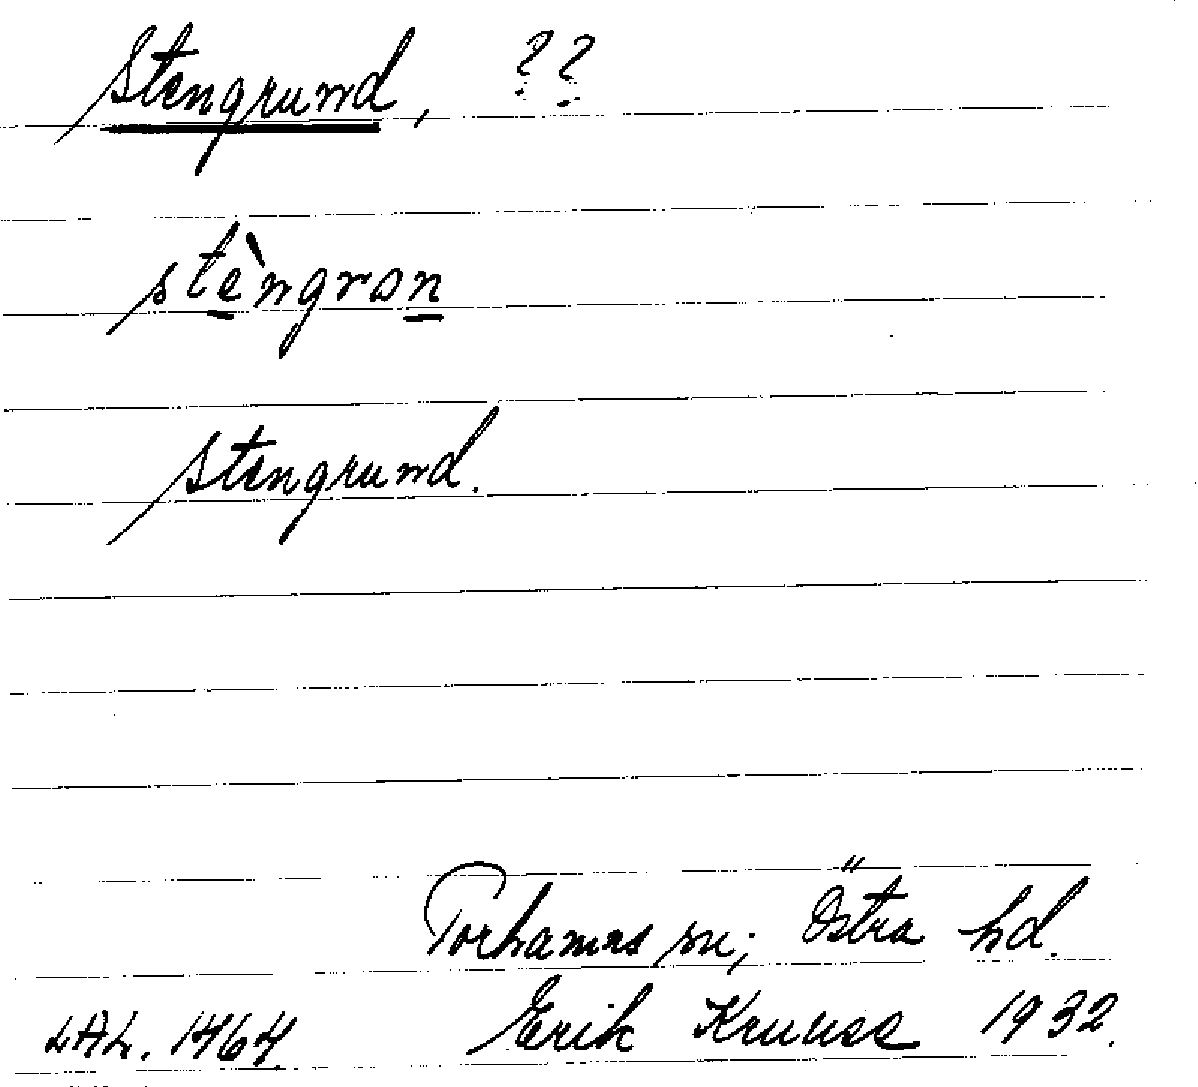 Stengrund, ??
stèngron
Stengrund.
Torhamns sn; Östra hd.
LAL. 1464. Erik Kruuse 1932.